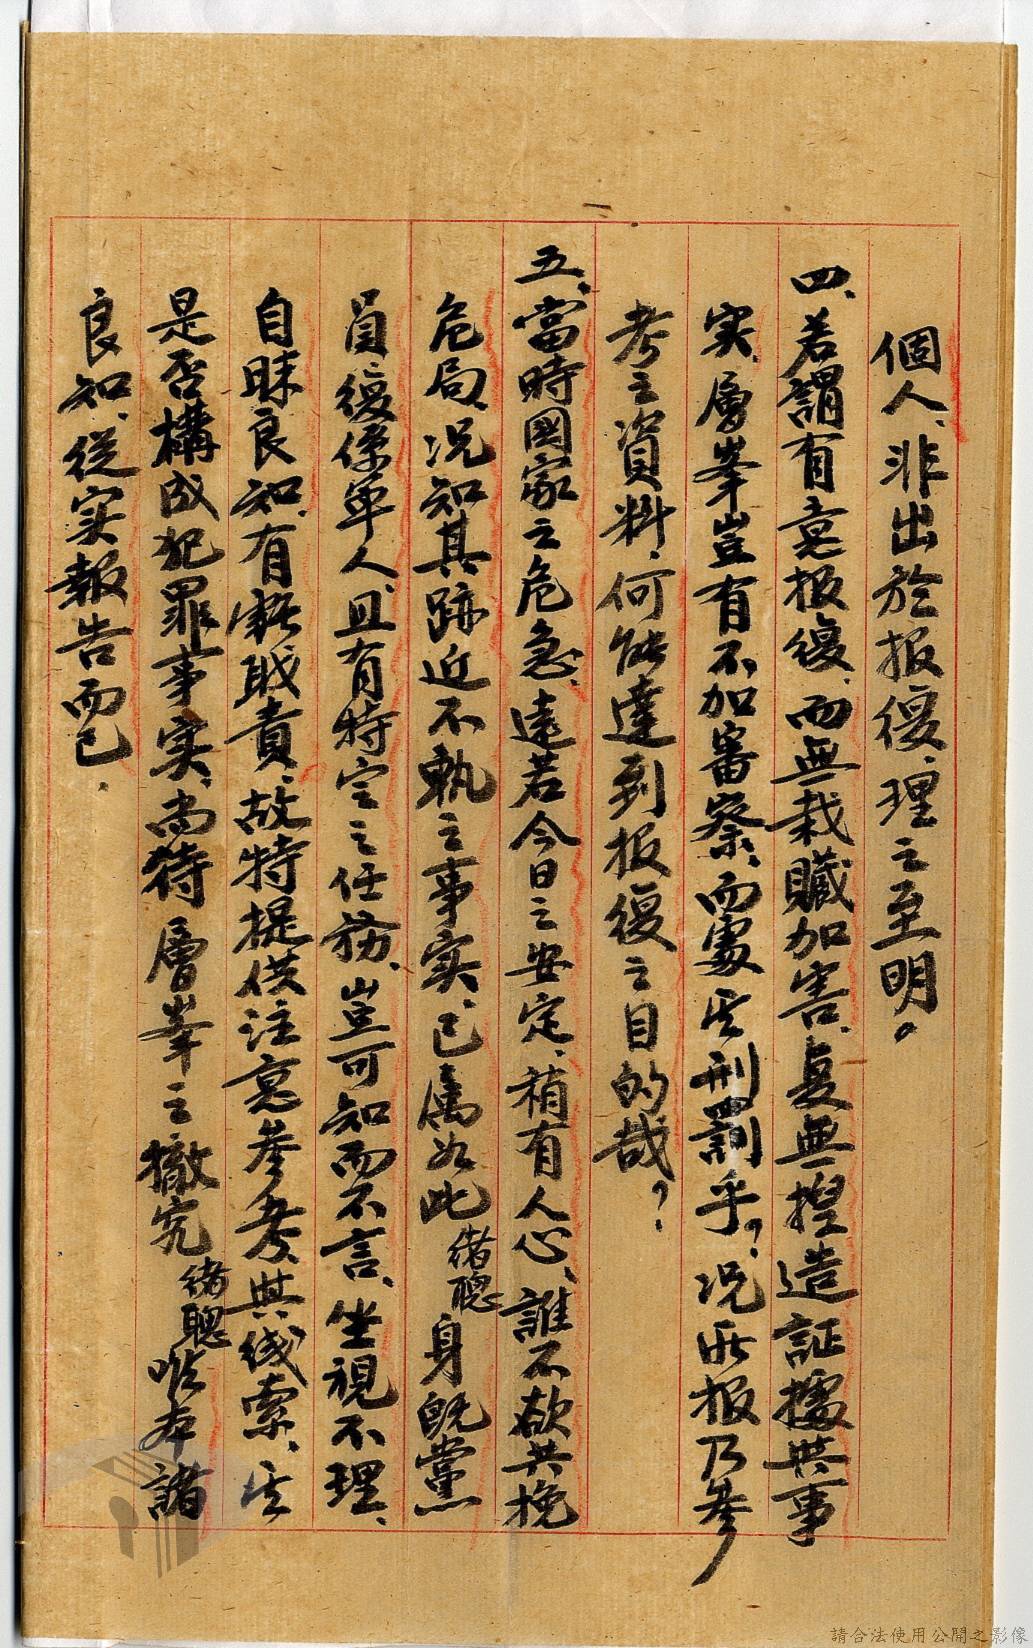 個人、非出於报復、理之至明。
四、若謂有意报復、而無栽贓加害、复無揑造証據與事
实、層峯豈有不加審察、而處以刑罰乎？況所报乃參
考之資料、何能達到报復之目的哉？
五、當時國家之危急、遠若今日之安定、稍有人心、誰不欲共挽
危局、況知其跡近不軌之事实、已属如此緒聰身既黨
員、復係軍人、且有特定之任務、豈可知而不言、坐視不理、
自昧良知、有虧職責、故特提供注意參考、與线索、其
是否構成犯罪事实、尚待 層峯之撤究緒聰唯本諸
良知、從实報告而已．
請合法使用公開之影像